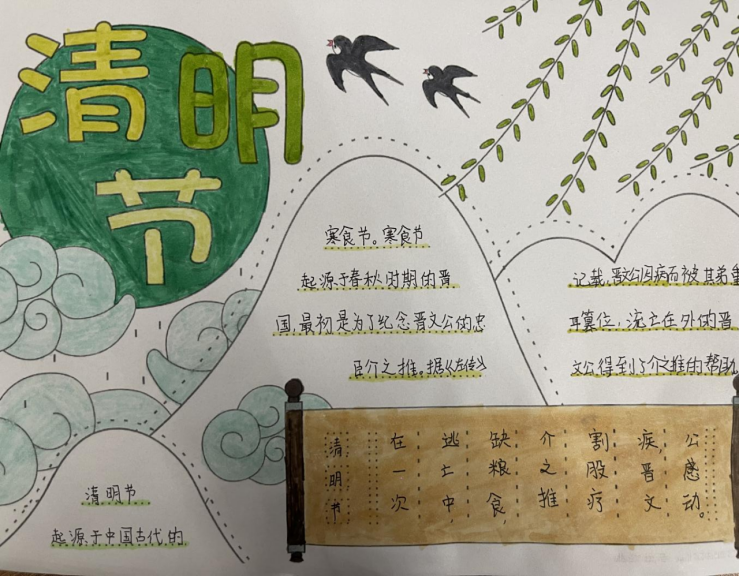 清明
节
清明节
起源于中国古代的
寒食节。寒食节
起源于春秋时期的晋
国,最初是为了纪念晋文公的忠
臣介之推。据《左传》
记载,晋文公因病而被其弟重
耳篡位,流亡在外的晋
文公得到了介之推的帮助
清明节
在一次
逃亡中,
缺粮食,
介之推
割股疗
疾,晋文
公感动。